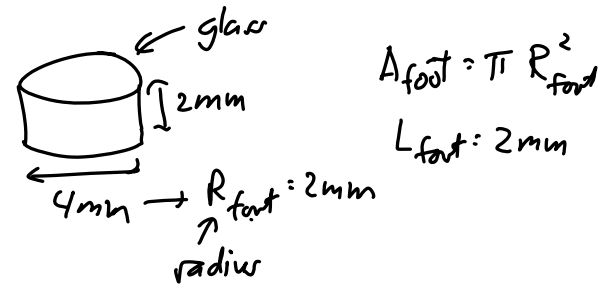 glass
2mm
4mm → R_foot : 2mm
radius
A_foot : π R_foot²
L_foot : 2mm